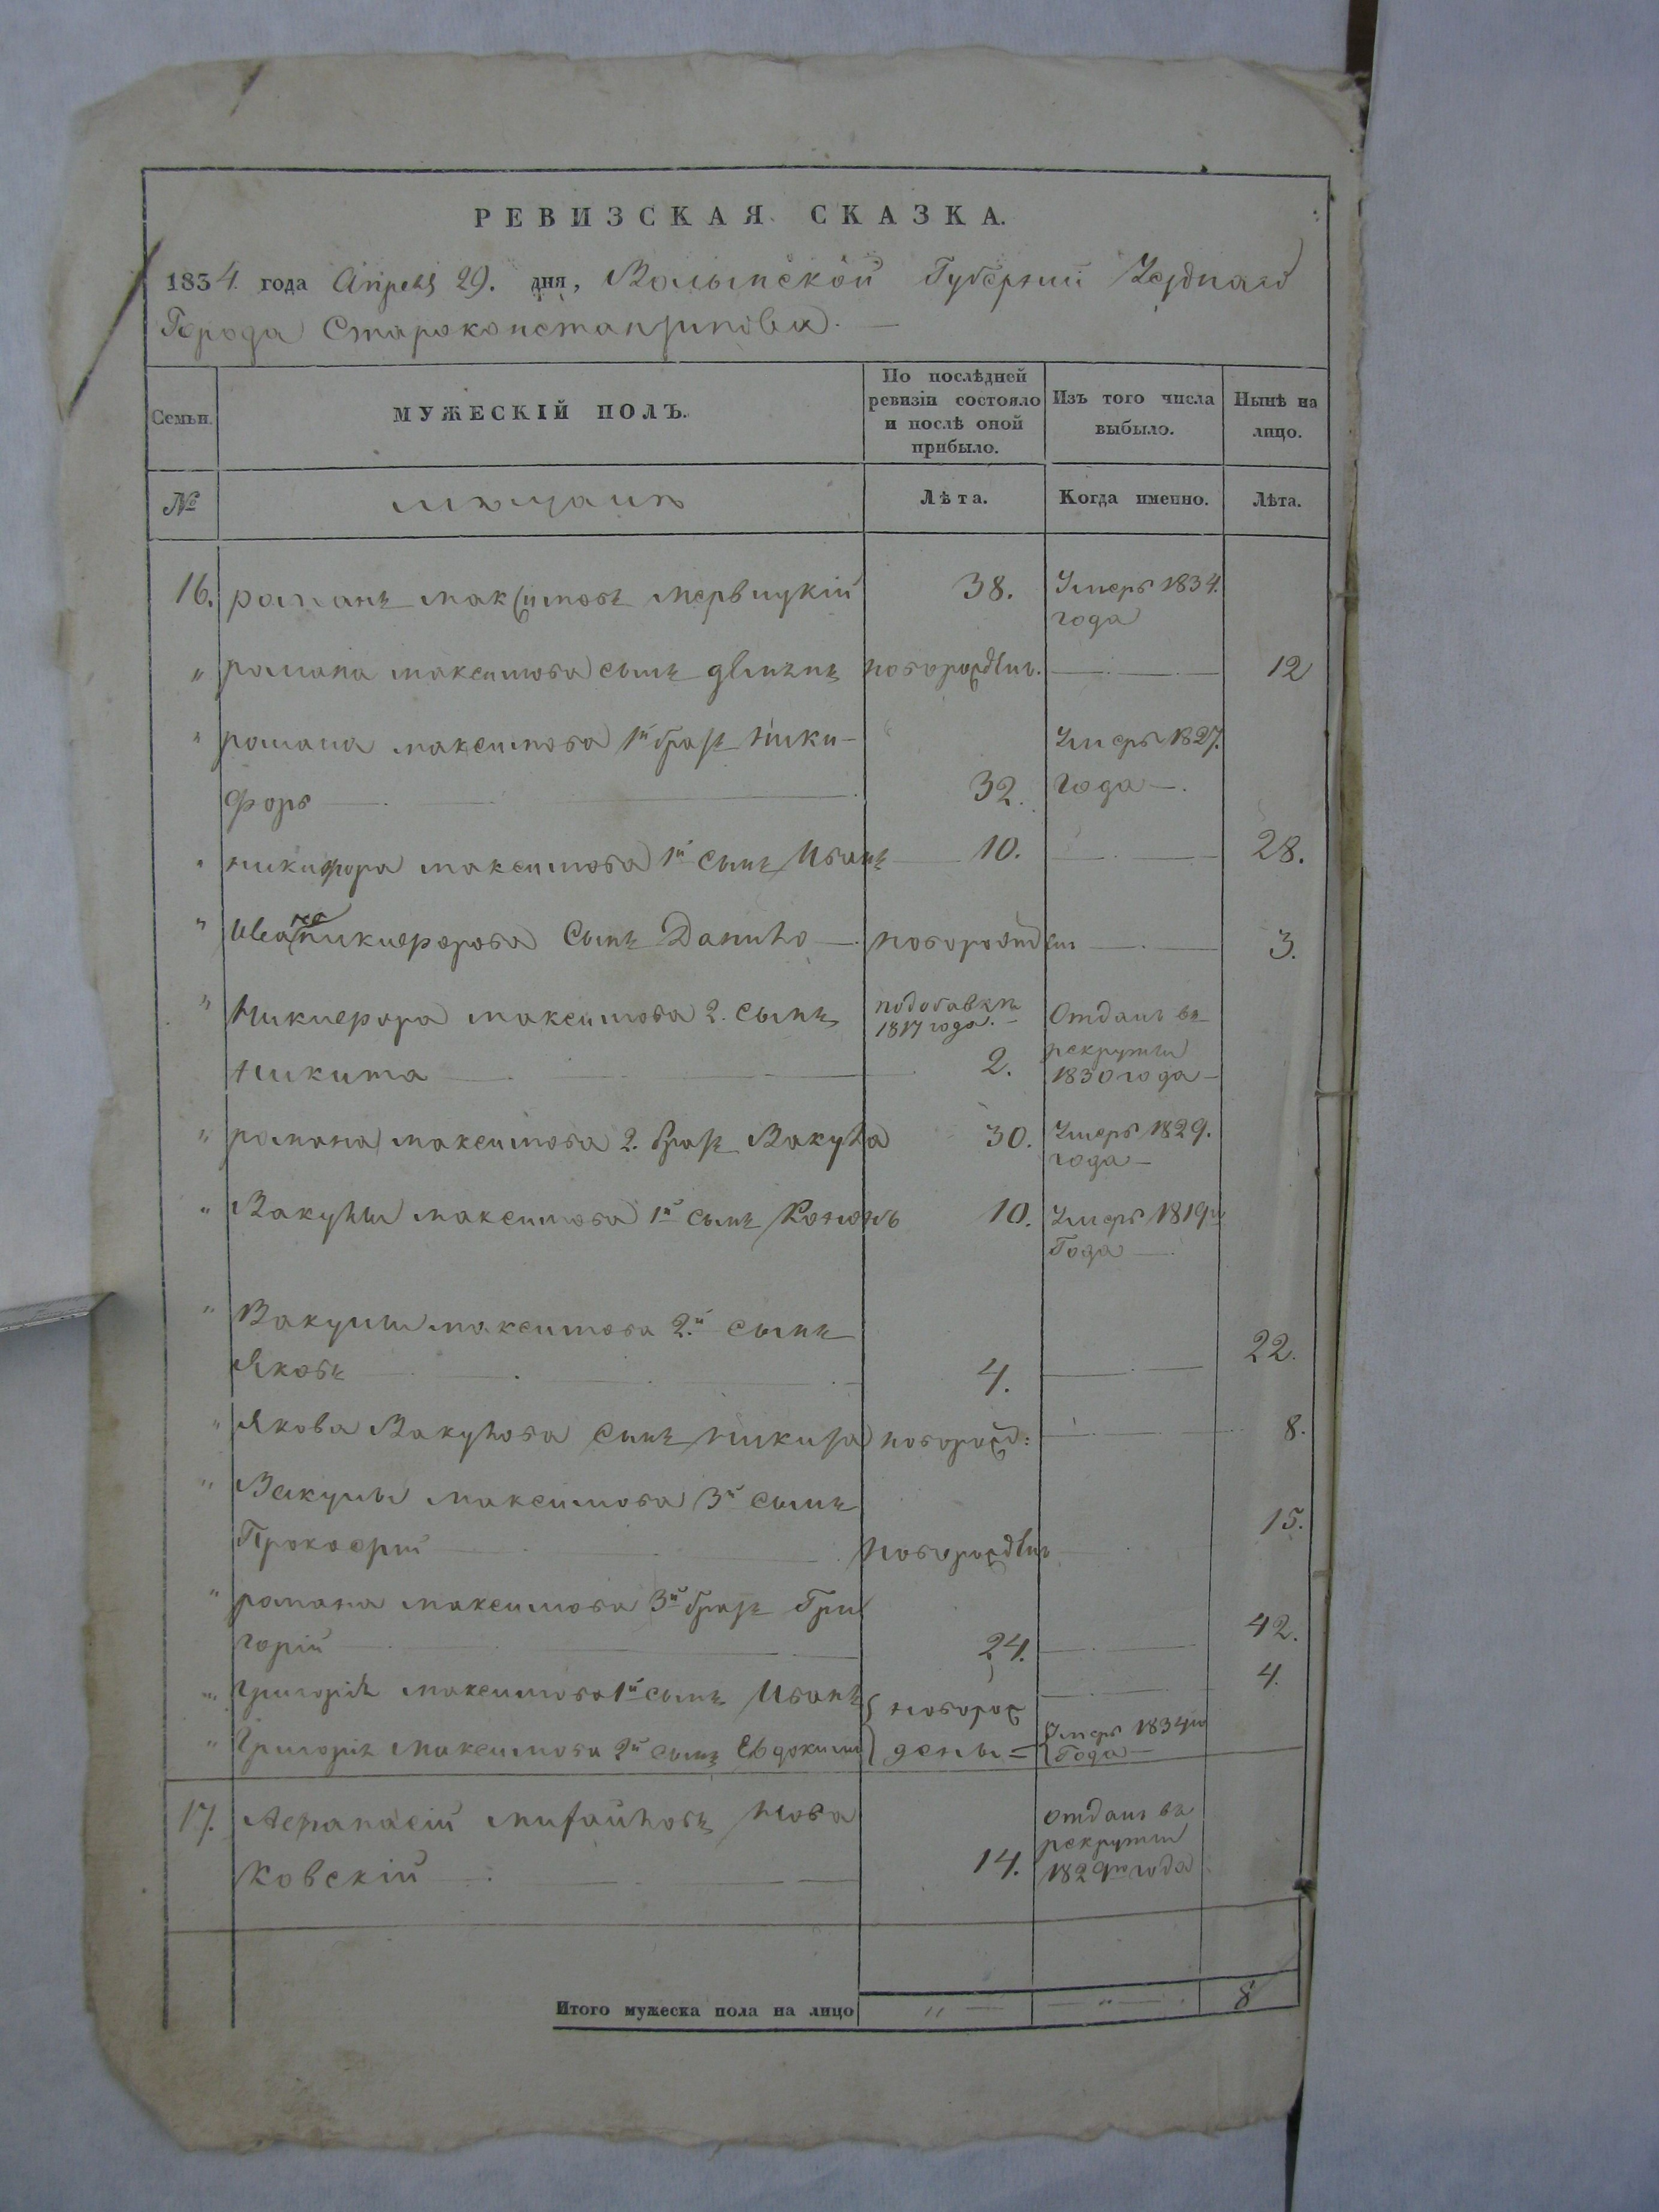 РЕВИЗСКАЯ СКАЗКА.
1834. года Апреля 29. дня, Волынской Губернии Уезднаго
Города Староконстантинова. —
Семьи.
МУЖЕСКІЙ ПОЛЪ.
По послѣдней ревизіи состояло и послѣ оной прибыло.
Изъ того числа выбыло.
Нынѣ на лицо.
№
мещане
Лѣта.
Когда именно.
Лѣта.
16. романъ максимовъ мервицкій 38. Умеръ 1834. года
" романа максимова сынъ новорожденъ. — 12
" романа максимова 1й братъ Ники-
форъ — 32. Умеръ 1827. года —.
" никифора максимова 1й сынъ Иванъ 10. — 28.
" Ивана никифорова сынъ Данило — новорожден — 3.
" Никифора максимова 2. сынъ
Никита — подобавкѣ 1817 года. — 2. Отданъ въ рекруты 1830 года —
" романа максимова 2. братъ Вакула 30. Умеръ 1829. года —
" Вакулы максимова 1й сынъ Кононъ 10. Умеръ 1819го Года —
" Вакулы максимова 2.й сынъ
Яковъ — 4. — 22.
" Якова Вакулова сынъ никита новорожд: — 8.
" Вакулы максимова 3й сынъ
Прокофий — новорожденъ — 15.
" романа максимова 3й братъ Гри
горій — 24. — 42.
" Григорія максимова 1й сынъ Иванъ новорож — 4.
" Григорія максимова 2й сынъ Евдокимъ дены = Умеръ 1834го Года —
17. Афанасій михайловъ Нова
ковскій — 14. отданъ въ рекруты 1829го года
Итого мужеска пола на лицо " — — " — 8